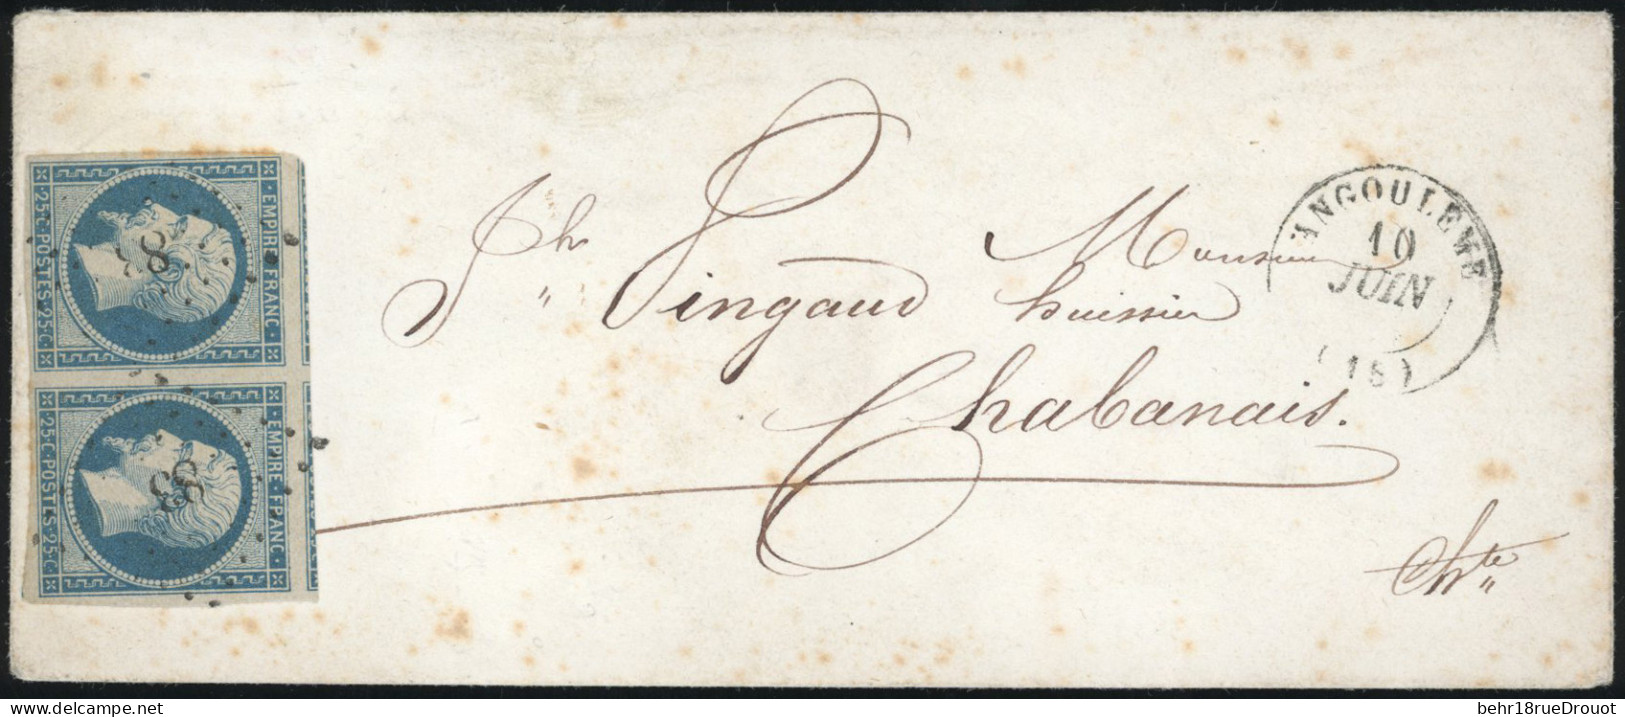 EMPIRE FRANC.
25·C·POSTES·25·C
83
EMPIRE·FRANC.
25·C·POSTES·25·C
83
ANGOULEME
10
JUIN
Monsieur
Jh Pingaud huissier
Chabanais.
behr18rueDrouot